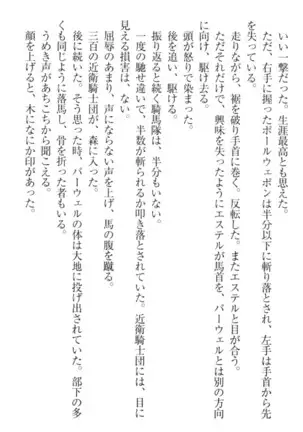 いい一撃だった。生涯最高とも思えた。
ただ、右手に握ったポールウェポンは半分以下に斬り落とされ、左手は手首から先
を失っている。
走りながら、裾を破り手首に巻く。反転した。またエステルと目が合う。
ただそれだけで、興味を失ったようにエステルが馬首を、パーウェルとは別の方向
に向け、駆け去る。
頭が怒りで染まった。
後を追い、駆ける。
振り返ると続く騎馬隊は、半分もいない。
一度の馳せ違いで、半数が斬られるか叩き落とされていた。近衛騎士団には、目に
見える損害は　ない。
屈辱のあまり、声にならない声を上げ、馬の腹を蹴る。
三百の近衛騎士団が、森に入った。
後に続いた。そう思った時、パーウェルの体は大地に投げ出されていた。部下の多
くも同じように落馬し、骨を折った者もいる。
うめき声があちこちから聞こえる。
顔を上げると、木になにか印があった。